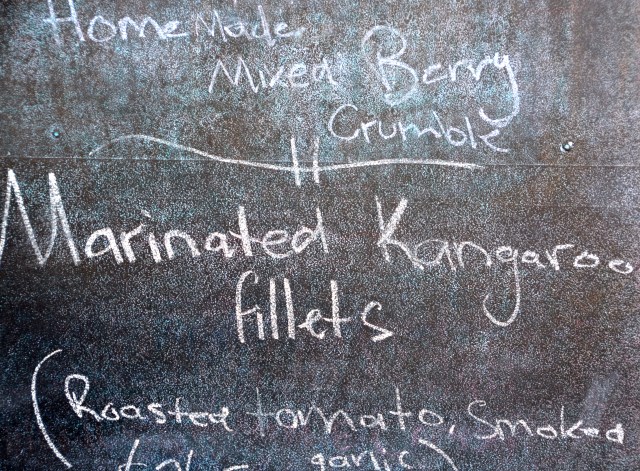 HomeMade
Mixed Berry
Crumble
Marinated Kangaroo
fillets
(Roasted tomato, Smoked
garlic)